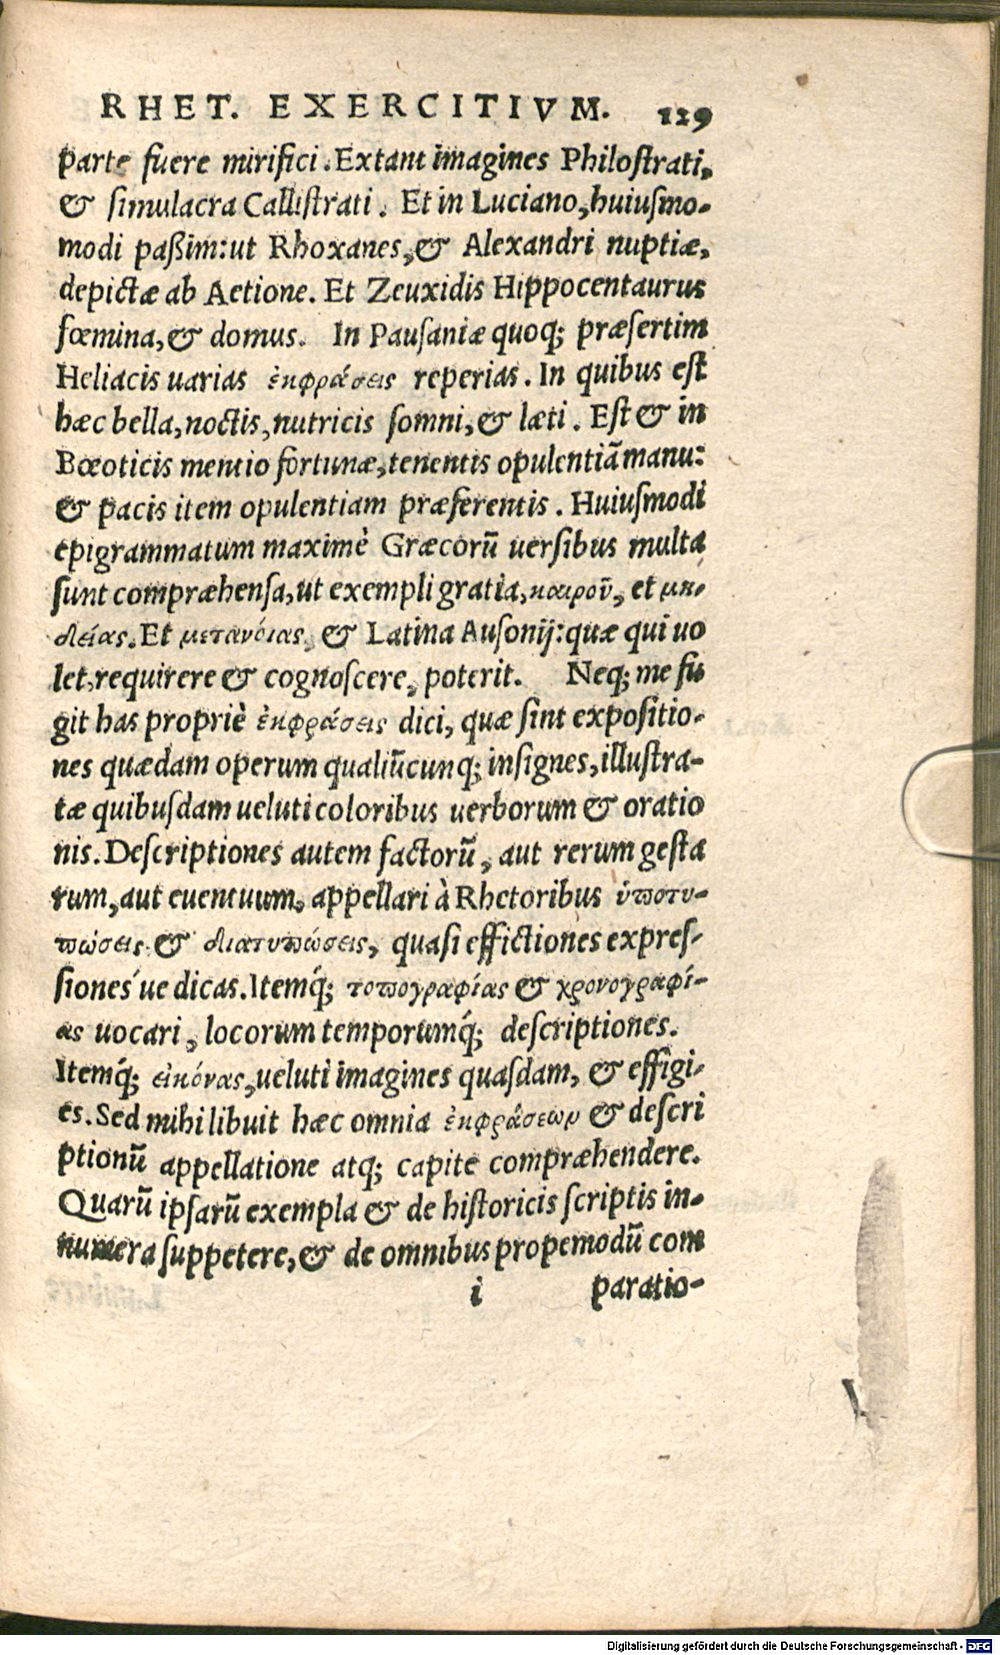 RHET. EXERCITIVM. 129
parte fuere mirifici. Extant imagines Philostrati,
& simulacra Callistrati. Et in Luciano, huiusmo-
modi paßim: ut Rhoxanes, & Alexandri nuptiæ,
depictæ ab Aetione. Et Zeuxidis Hippocentaurus
fœmina, & domus. In Pausaniæ quoq; præsertim
Heliacis uarias ἐκφράσεις reperias. In quibus est
hæc bella, noctis, nutricis somni, & læti. Est & in
Bœoticis mentio fortunæ, tenentis opulentiã manu:
& pacis item opulentiam præferentis. Huiusmodi
epigrammatum maximè Græcorũ uersibus multa
sunt compræhensa, ut exempli gratia, καιροῦ, et μη-
δείας. Et μετανοίας, & Latina Ausonij: quæ qui uo
let, requirere & cognoscere, poterit. Neq; me fu
git has propriè ἐκφράσεις dici, quæ sint expositio-
nes quædam operum qualiũcunq; insignes, illustra-
tæ quibusdam ueluti coloribus uerborum & oratio
nis. Descriptiones autem factorũ, aut rerum gesta
rum, aut euentuum, appellari à Rhetoribus ὑποτυ-
πώσεις & διατυπώσεις, quasi effictiones expres-
siones ue dicas. Itemq́; τοπογραφίας & χρονογραφί-
ας uocari, locorum temporumq́; descriptiones.
Itemq́; εἰκόνας, ueluti imagines quasdam, & effigi-
es. Sed mihi libuit hæc omnia ἐκφράσεων & descri
ptionũ appellatione atq; capite compræhendere.
Quarũ ipsarũ exempla & de historicis scriptis in-
numera suppetere, & de omnibus propemodũ com
i paratio-
Digitalisierung gefördert durch die Deutsche Forschungsgemeinschaft - DFG